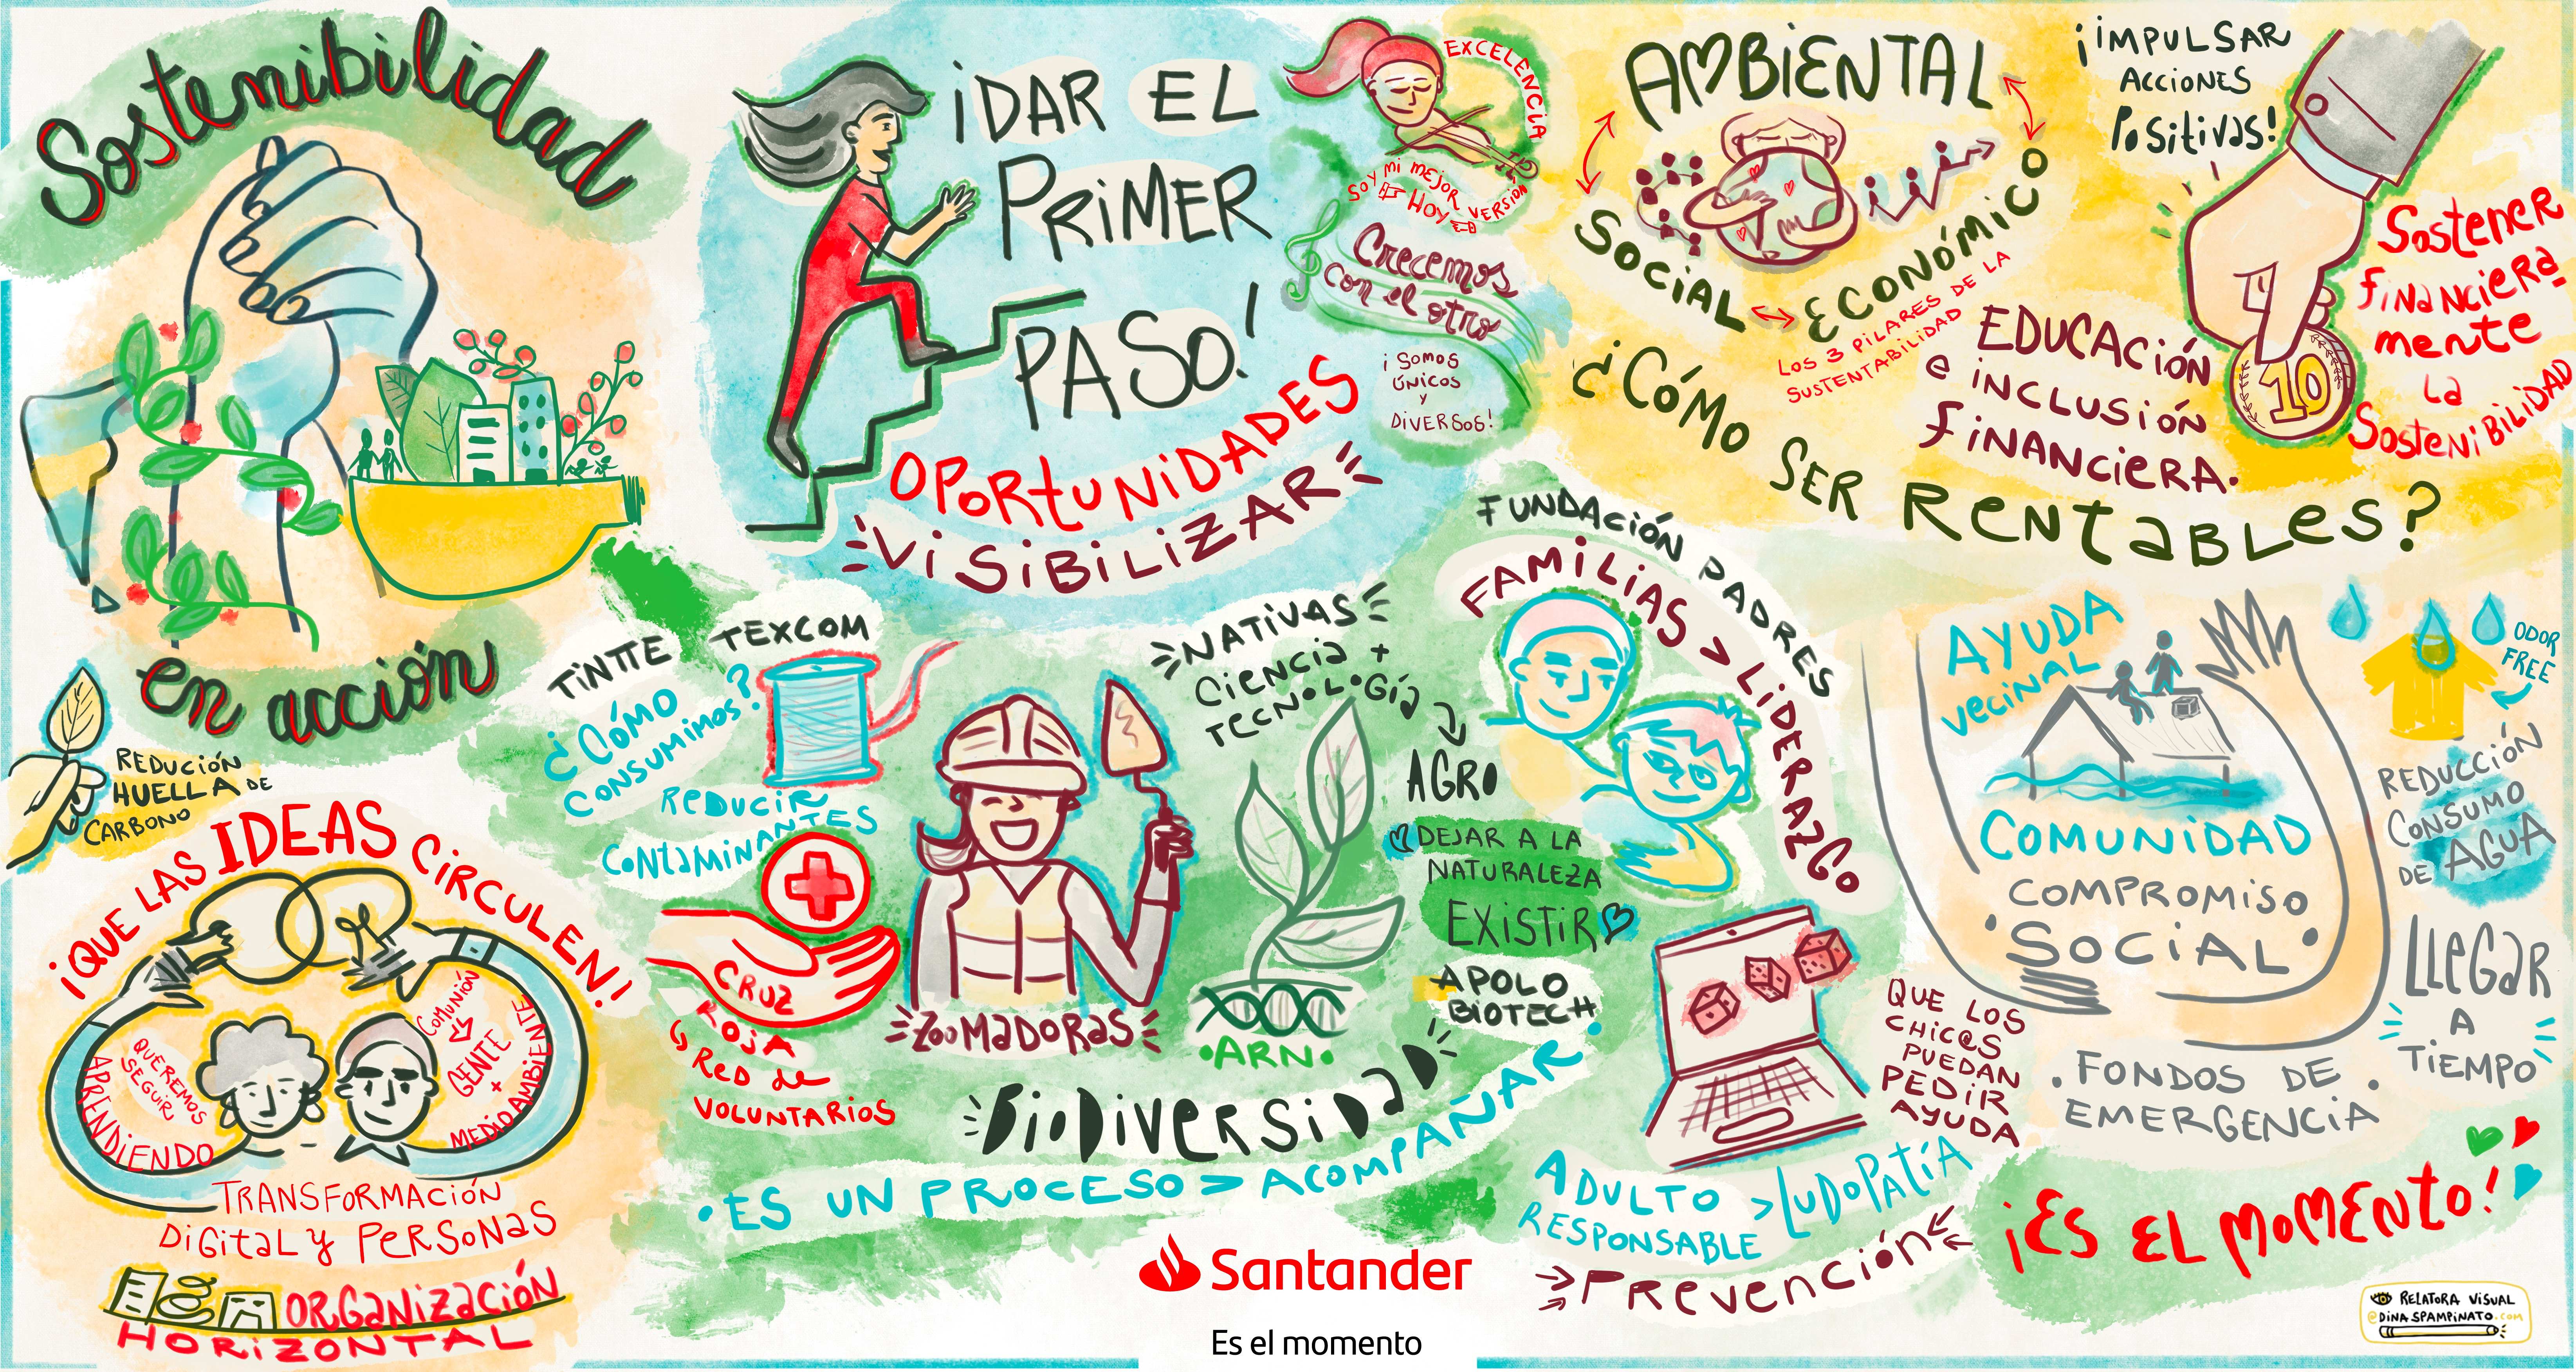 Sostenibilidad
en acción
REDUCIÓN
HUELLA DE
CARBONO
¡QUE LAS IDEAS CIRCULEN!
QUEREMOS
SEGUIR
APRENDIENDO
COMUNIÓN
GENTE
+
MEDIO AMBIENTE
TRANSFORMACIÓN
DIGITAL y PERSONAS
ORGANIZACIÓN
HORIZONTAL
¡DAR EL
PRIMER
PASO!
OPORTUNIDADES
VISIBILIZAR
EXCELENCIA
SOY MI MEJOR VERSIÓN
HOY
Crecemos
con el otro
¡SOMOS
ÚNICOS
Y
DIVERSOS!
AMBIENTAL
SOCIAL
ECONÓMICO
LOS 3 PILARES DE LA
SUSTENTABILIDAD
¡IMPULSAR
ACCIONES
POSITIVAS!
10
EDUCACIÓN
e INCLUSIÓN
FINANCIERA.
SOSTENER
FINANCIERA
mente
La
SOSTENIBILIDAD
¿CÓMO SER RENTABLES?
TINTTE TEXCOM
¿CÓMO
CONSUMIMOS?
REDUCIR
CONTAMINANTES
CRUZ
ROJA
RED de
VOLUNTARIOS
ZOOMADORAS
NATIVAS
CIENCIA +
TECNOLOGÍA
AGRO
DEJAR A LA
NATURALEZA
EXISTIR
APOLO
BIOTECH
•ARN•
BIODIVERSIDAD
•ES UN PROCESO > ACOMPAÑAR•
FUNDACIÓN PADRES
FAMILIAS > LIDERAZGO
QUE LOS
CHIC@S
PUEDAN
PEDIR
AYUDA
ADULTO
RESPONSABLE
>LUDOPATÍA
PREVENCIÓN
AYUDA
VECINAL
COMUNIDAD
COMPROMISO
•SOCIAL•
•FONDOS DE•
EMERGENCIA
ODOR
FREE
REDUCCIÓN
CONSUMO
DE AGUA
LLEGAR
A
TIEMPO
¡ES EL MOMENTO!
Santander
Es el momento
RELATORA VISUAL
@DINASPAMPINATO.COM